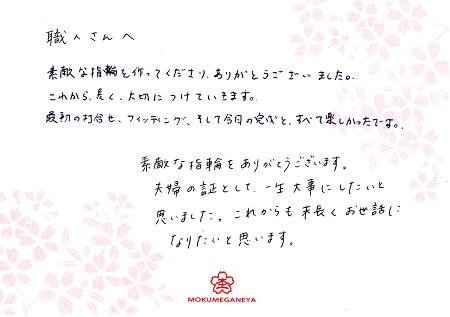 職人さんへ
素敵な指輪を作ってくださり、ありがとうございました。
これから、長く、大切につけていきます。
最初の打合せ、フィッティング、そして今日の完成と、すべて楽しかったです。
素敵な指輪をありがとうございます。
夫婦の証として、一生大事にしたいと
思いました。これからも末長くお世話に
なりたいと思います。
MOKUMEGANEYA